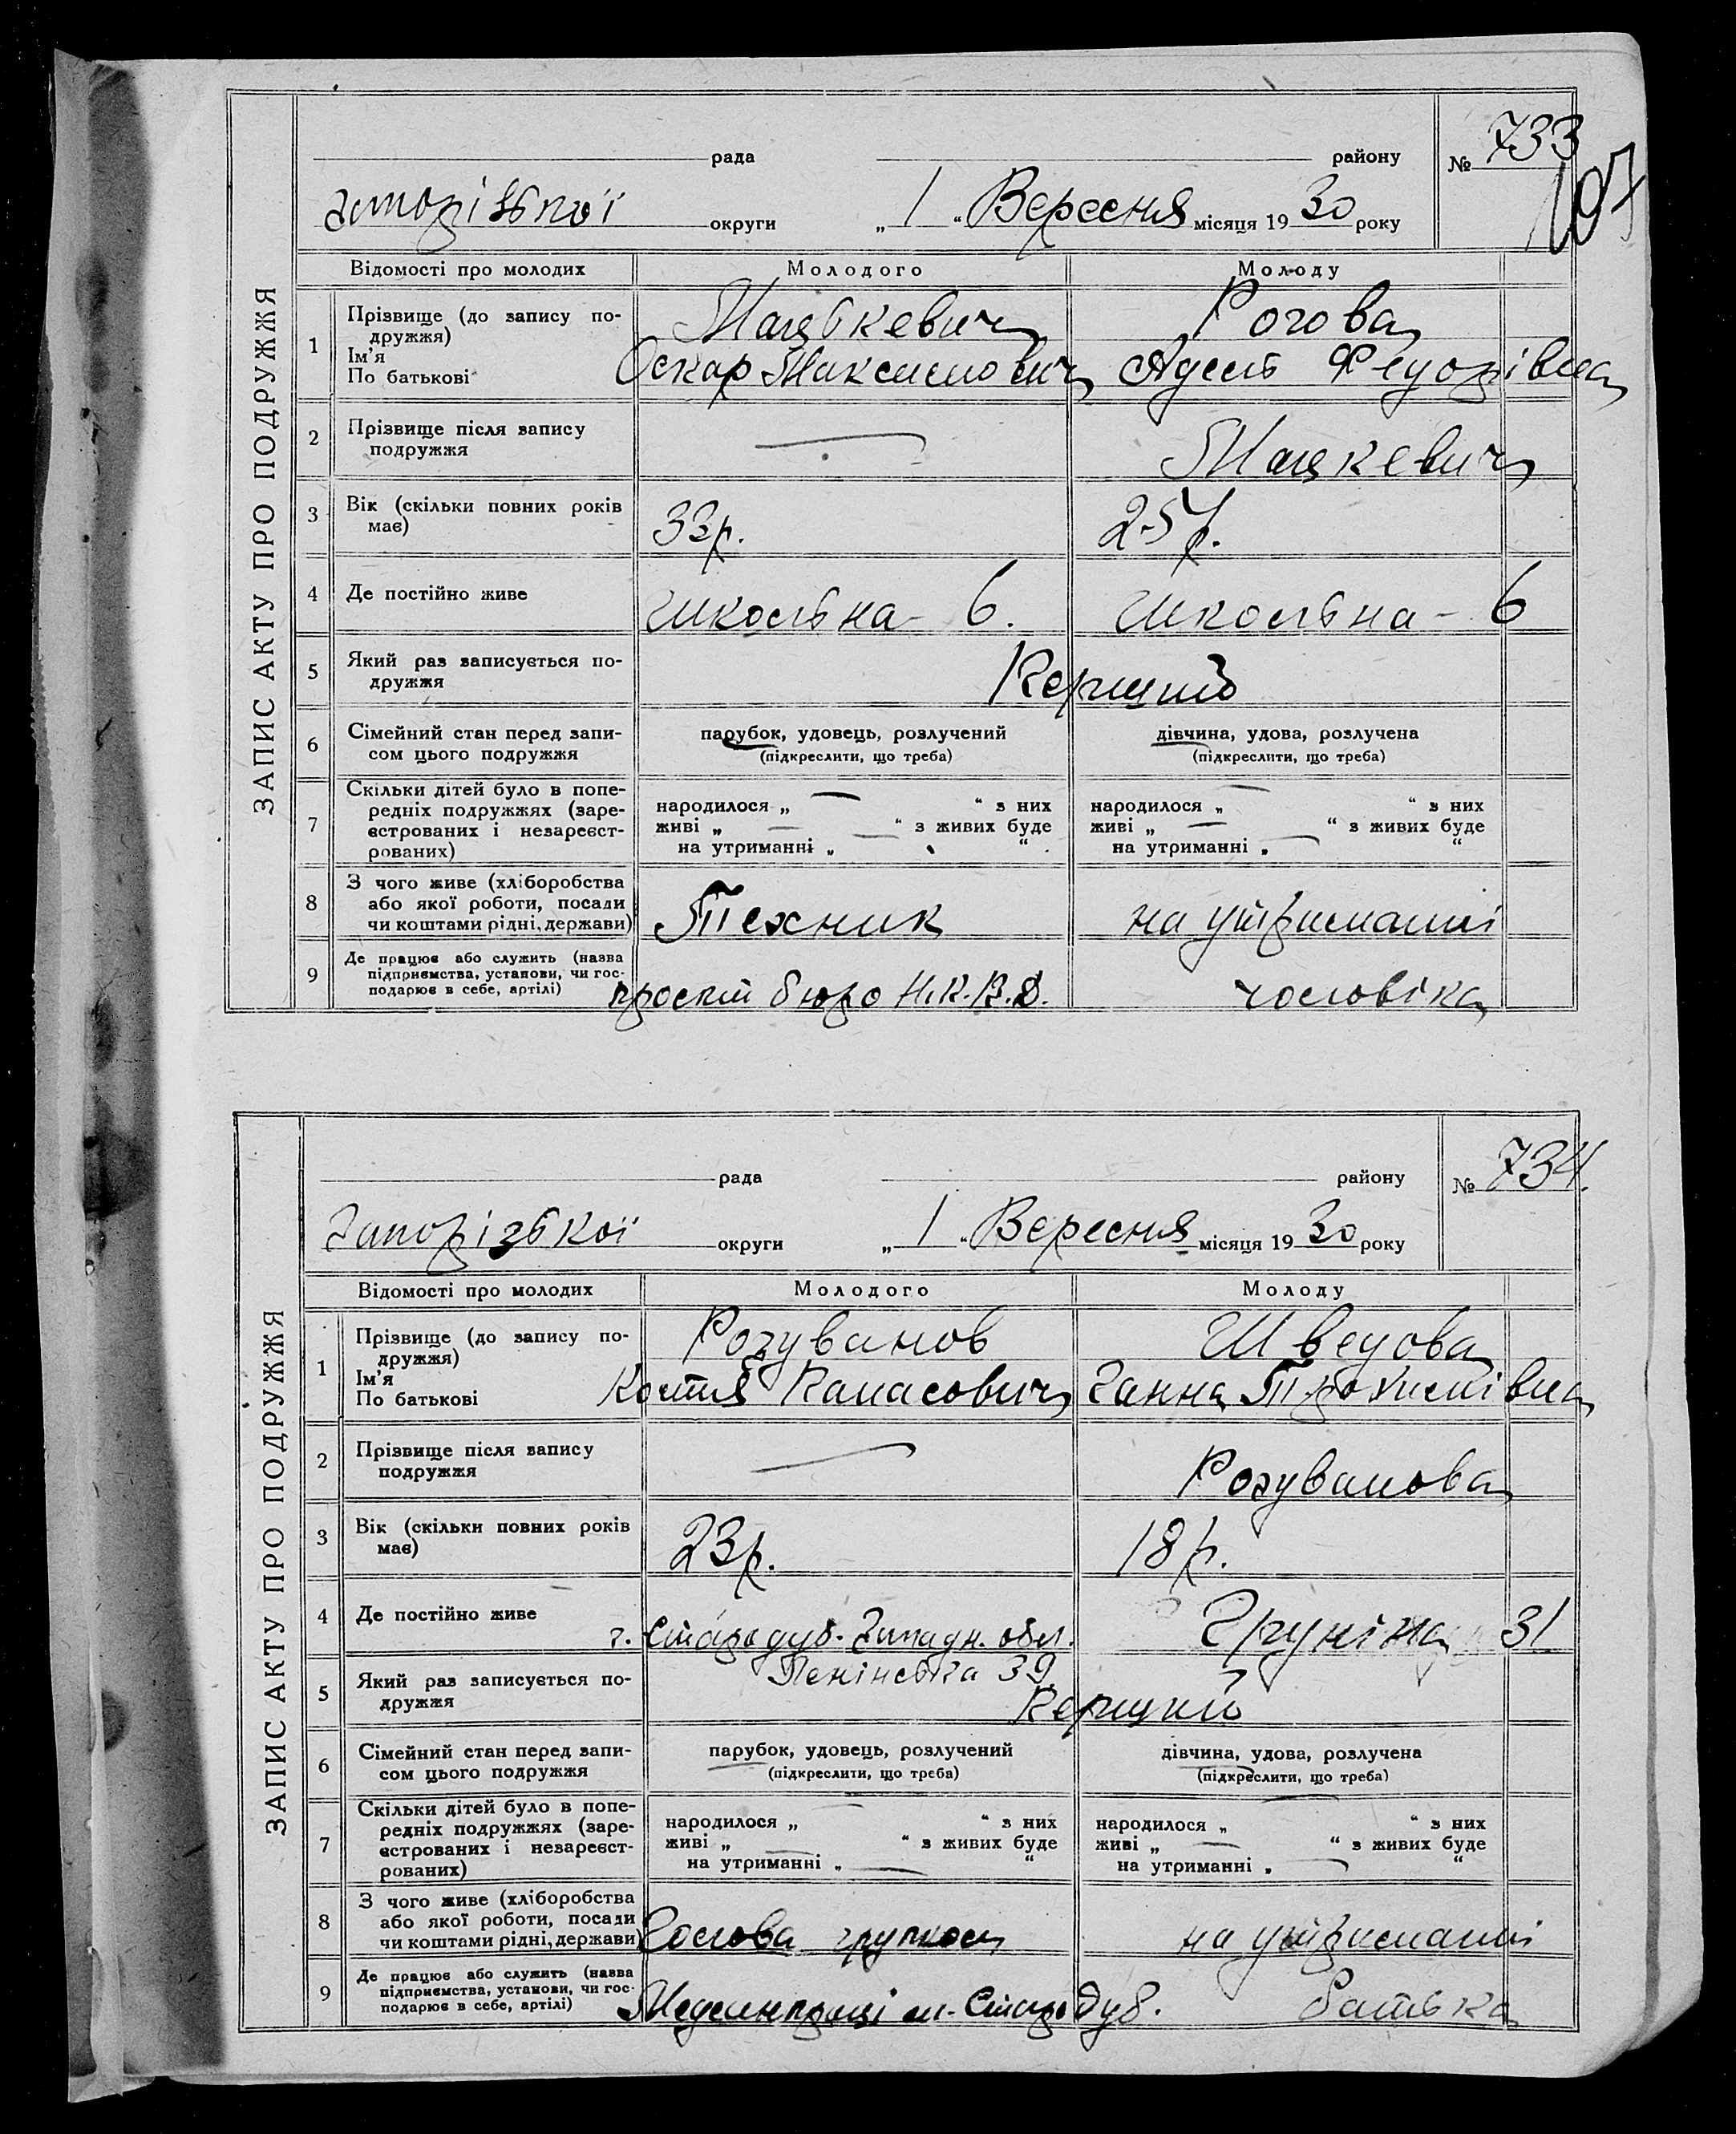 ЗАПИС АКТУ ПРО ПОДРУЖЖЯ
рада району № 733
197
Запорізької округи „ 1 “ Вересня місяця 19 30 року
Відомості про молодих Молодого Молоду
1 Прізвище (до запису по-
дружжя)
Ім’я
По батькові
Мацькевич Рогова
Оскар Максимович Адель Федорівна
2 Прізвище після запису
подружжя
— Мацкевич
3 Вік (скільки повних років
має)
33р. 25р.
4 Де постійно живе Школьна - 6. Школьна - 6
5 Який раз записується по-
дружжя
Перший
6 Сімейний стан перед запи-
сом цього подружжя
парубок, удовець, розлучений дівчина, удова, розлучена
(підкреслити, що треба) (підкреслити, що треба)
7 Скільки дітей було в попе-
редніх подружжях (заре-
єстрованих і незареєст-
рованих)
народилося „ — “ з них народилося „ — “ з них
живі „ — “ з живих буде живі „ — “ з живих буде
на утриманні „ — “ на утриманні „ — “
8 З чого живе (хліборобства
або якої роботи, посади
чи коштами рідні, держави)
Техник на утриманні
9 Де працює або служить (назва
підприємства, установи, чи гос-
подарює в себе, артілі)
проект бюро Н.К.В.Д. чоловіка
ЗАПИС АКТУ ПРО ПОДРУЖЖЯ
рада району № 734.
Запорізької округи „ 1 “ Вересня місяця 19 30 року
Відомості про молодих Молодого Молоду
1 Прізвище (до запису по-
дружжя)
Ім’я
По батькові
Розуванов Шведова
Костя Панасович Ганна Трохимівна
2 Прізвище після запису
подружжя
— Розуванова
3 Вік (скільки повних років
має)
23р. 18р.
4 Де постійно живе г. Стародуб. Западн. обл. 31
Ленінська 39
5 Який раз записується по-
дружжя
Перший
6 Сімейний стан перед запи-
сом цього подружжя
парубок, удовець, розлучений дівчина, удова, розлучена
(підкреслити, що треба) (підкреслити, що треба)
7 Скільки дітей було в попе-
редніх подружжях (заре-
єстрованих і незареєст-
рованих)
народилося „ — “ з них народилося „ — “ з них
живі „ — “ з живих буде живі „ — “ з живих буде
на утриманні „ — “ на утриманні „ — “
8 З чого живе (хліборобства
або якої роботи, посади
чи коштами рідні, держави
Голова групком на утриманні
9 Де працює або служить (назва
підприємства, установи, чи гос-
подарює в себе, артілі)
м. Стародуб. батька